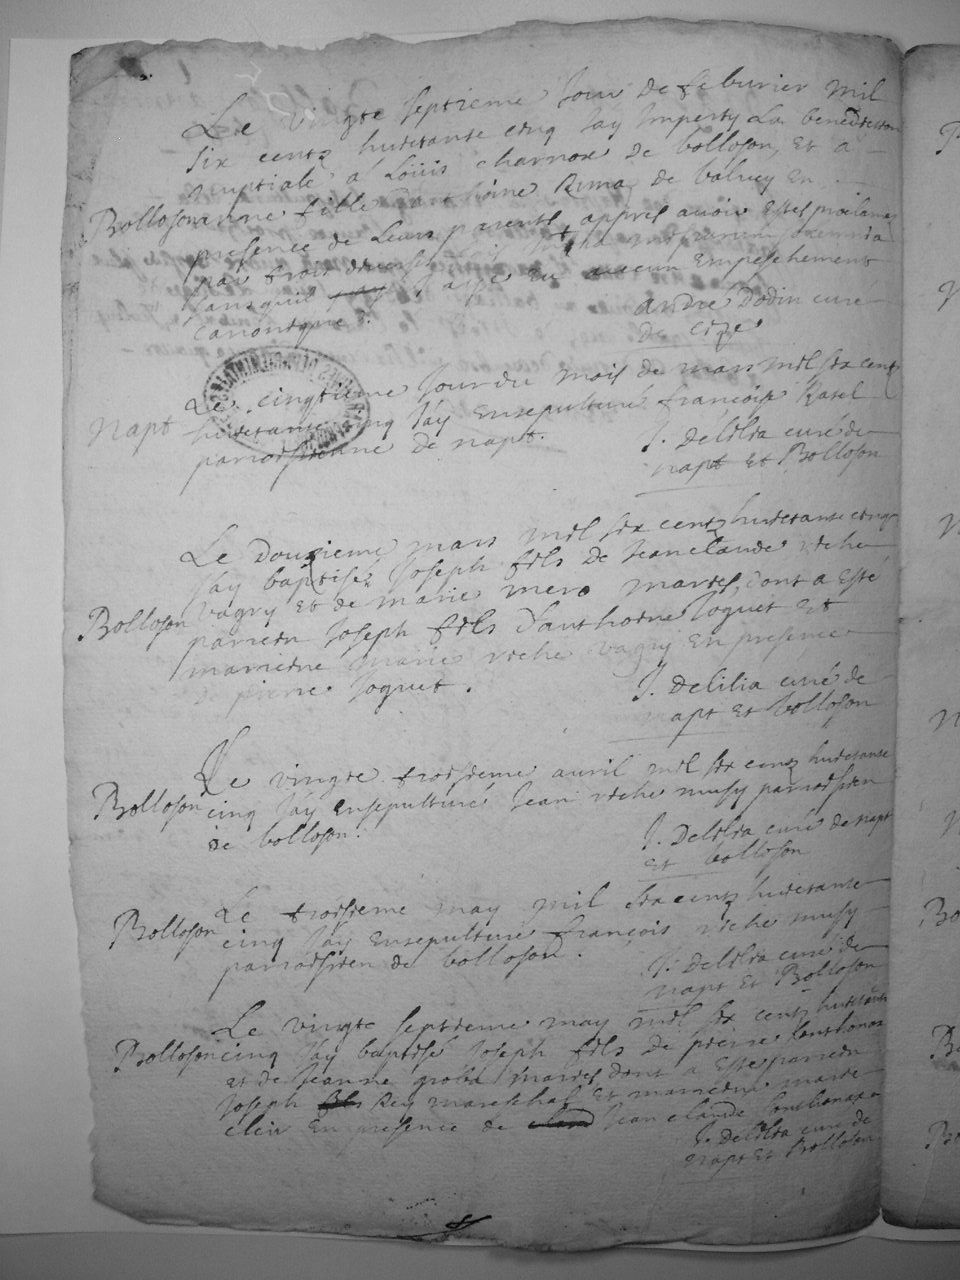 Le vingte septieme Jour de feburier mil
six centz huictante cinq Jay Imperty La benediction
nuptiale a Loüis charnox de bolloson, Et a
Bolloson anne fille dantoine Rima de balvey En
presence de Leurs parents, appres avoir Estes proclames
par trois
sansquil aye Eu aucun Empeschement
canonique. andre Dodin curé
de cize
Le cinqtieme Jour du mois de mars mil six centz
Napt huictante cinq Jay Ensepulturé françoise Rasel
parroissienne de napt. J. Delilia curé de
napt Et Bolloson
Le douzieme mars mil six centz huictante cinq
Jay baptisez Joseph fils de Jean claude viche
Bolloson vagry Et de marie mero maries, dont a Esté
parrein Joseph fils danthoine Joguet Et
marreine marie viche vagry En presence
de pierre Joguet. J. Delilia curé de
napt Et bolloson
Le vingte troisieme avril mil six centz huictante
Bolloson cinq Jay Ensepulturé Jean viche musy parroissien
de bolloson. J. Delilia curé de napt
Et bolloson
Le troisieme may mil six centz huictante
Bolloson cinq Jay Ensepulturé françois viche musy
parroissien de bolloson. J. Delilia curé de
napt Et Bolloson
Le vingte septieme may mil six centz huictante
Bolloson cinq Jay baptisé Joseph fils de pierre sonthonax
Et de Jeanne maries dont a Esté parrein
Joseph Rey mareschal Et marreine marie
clair En presence de Jean claude sonthonax
J. Delilia curé de
napt Et Bolloson